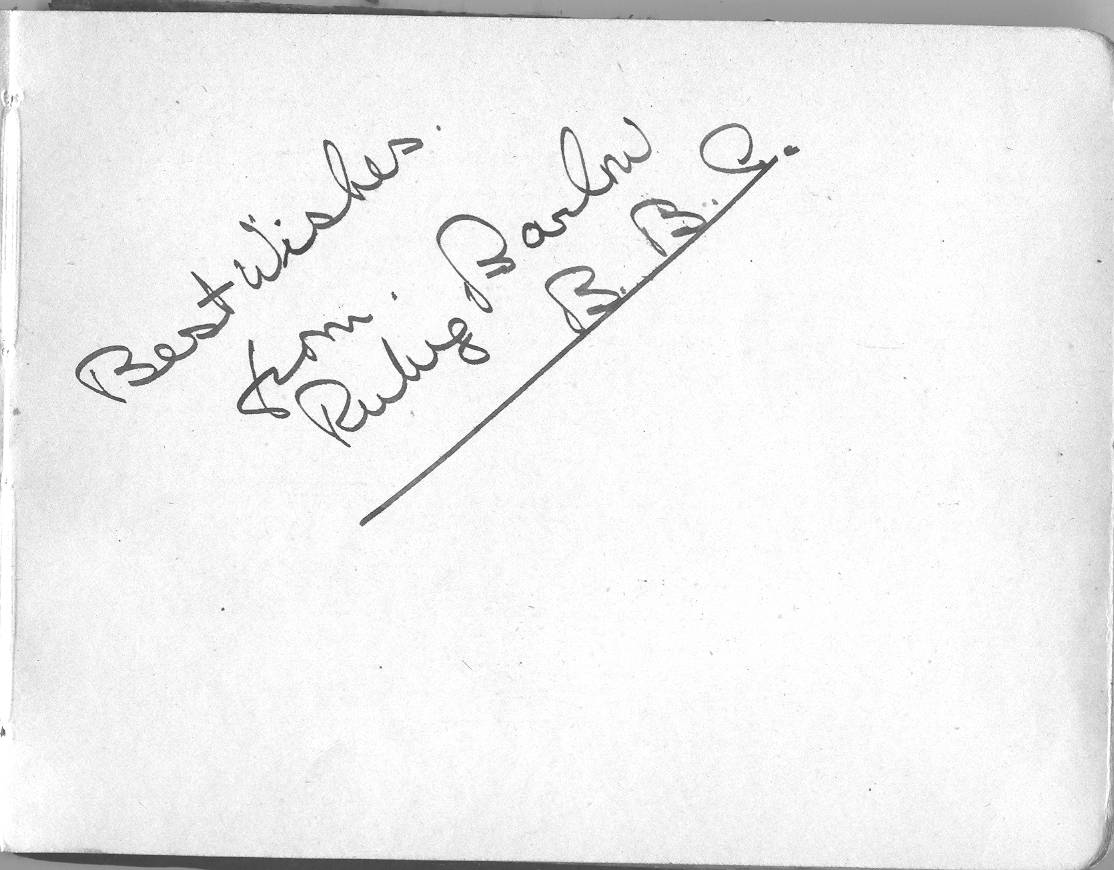 Best Wishes.
from.
Ruby Barlow
B. B. C.